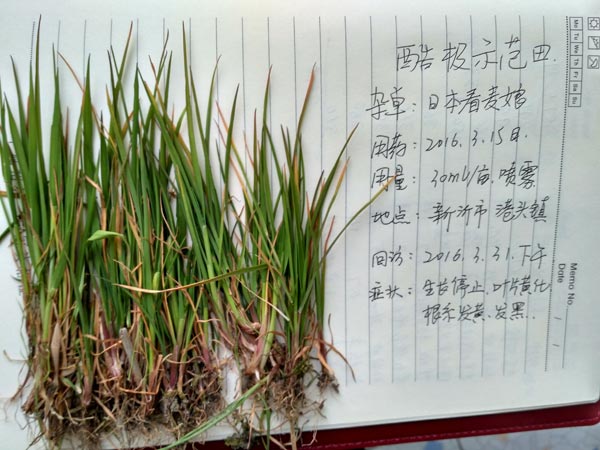 酷极示范田.
杂草：日本看麦娘
用药：2016.3.15日.
用量：30ml/亩.喷雾
地点：新沂市 港头镇
回访：2016.3.31.下午
症状：生长停止.叶片黄化
根系发黄.发黑.
Mo
Tu
We
Th
Fr
Sa
Su
Memo No.
Date / /